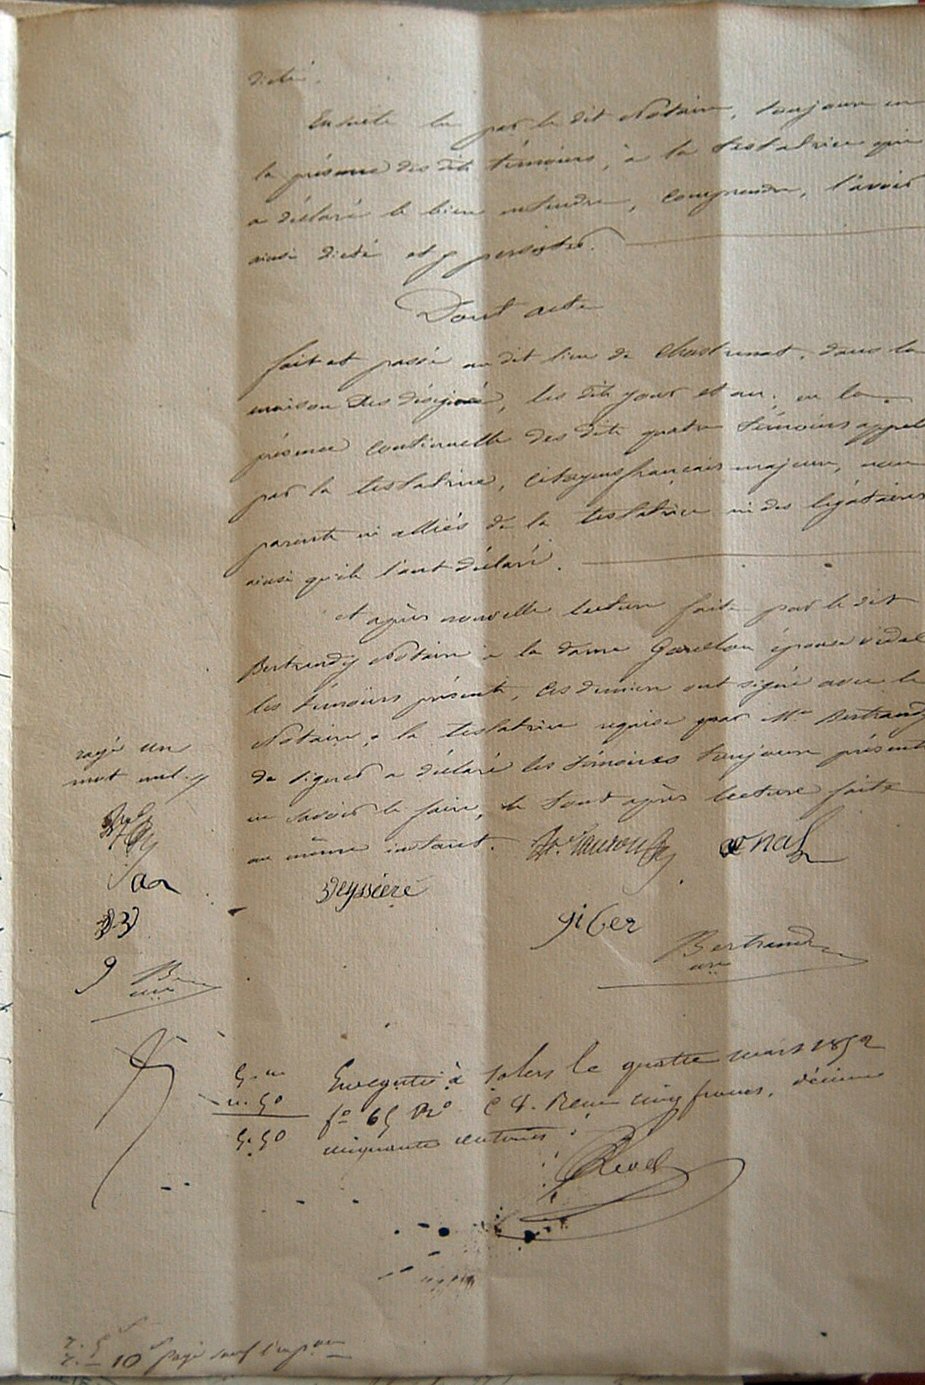 dicté.
Ensuite lu par le dit Notaire, toujours en
la présence des dits témoins, à la testatrice qui
a déclaré le bien entendre, comprendre, l'avoir
ainsi dicté et y persister.
Dont acte
fait et passé au dit lieu de Chastrenat, dans la
maison sus désignée, les dits jour et an, en la
présence continuelle des dits quatre témoins appelés
par la testatrice, citoyens français majeurs, non
parents ni alliés de la testatrice ni des légataires
ainsi qu'ils l'ont déclaré.
et après nouvelle lecture faite par le dit
Bertrandy Notaire à la dame épouse Vidal
les témoins présents, ces derniers ont signé avec le
Notaire, & la testatrice requise par Me Bertrandy
de signer a déclaré les témoins toujours présents
ne savoir le faire, le tout après lecture faite
au même instant.
rayé un
mot nul.
Veyssière
giber
Bertrandy
Enregistré à Salers le quatre mars 1852
fo 65 Ro C 4. Reçu cinq francs, décime
cinquante centimes.
5.
50
5.50
Revel
10 payé sauf